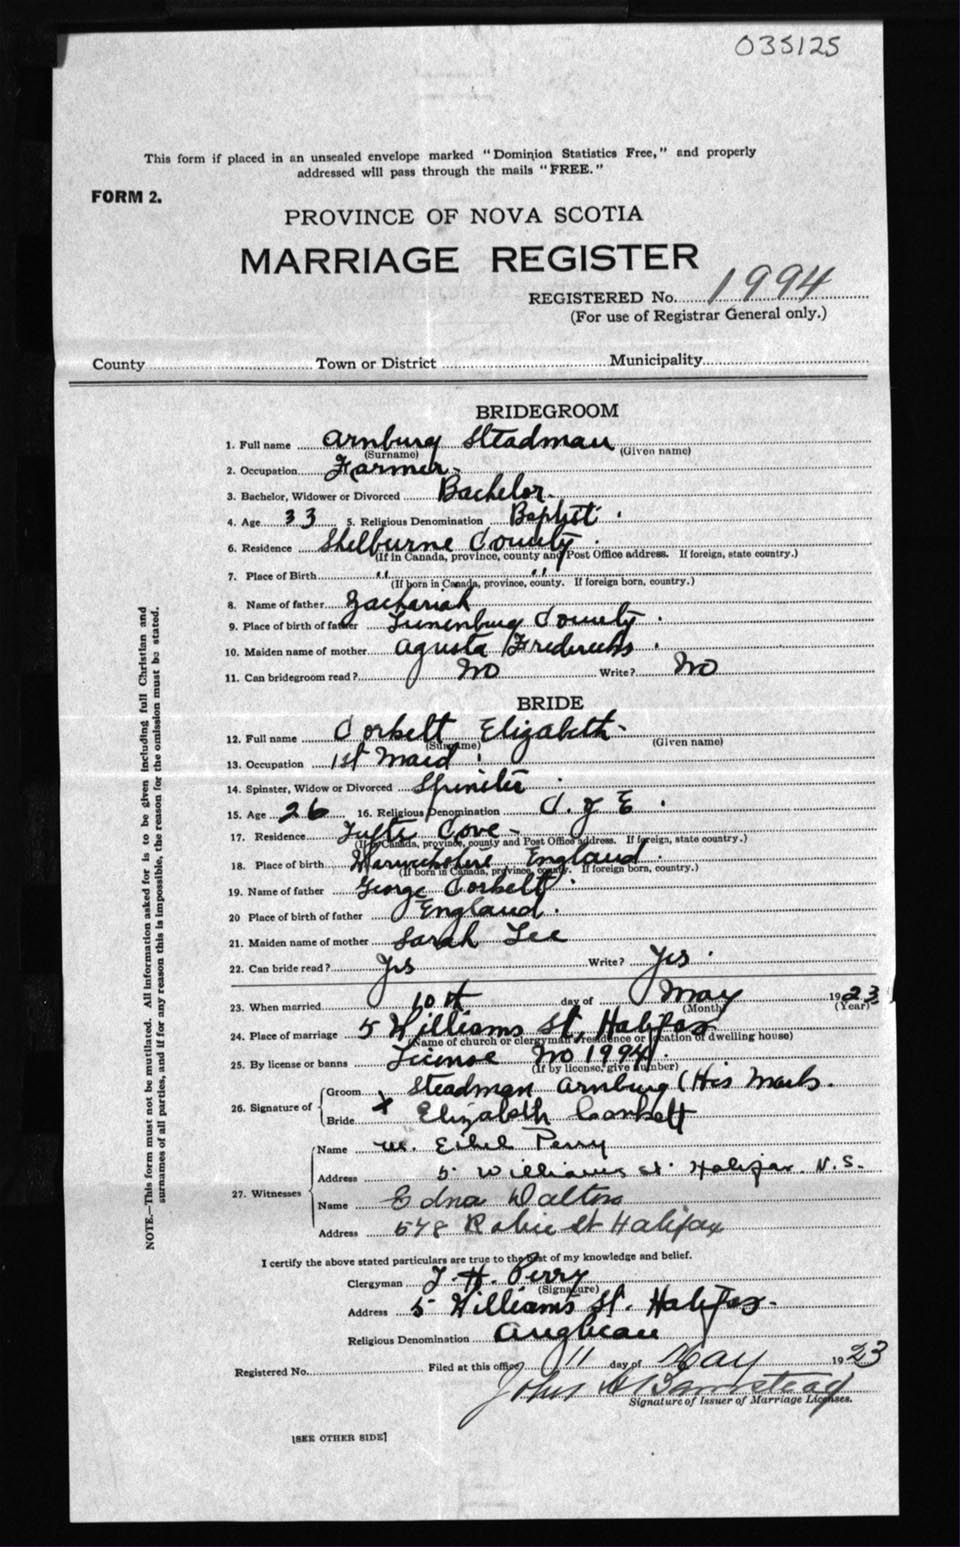 035125
This form if placed in an unsealed envelope marked "Dominion Statistics Free," and properly
addressed will pass through the mails "FREE."
FORM 2.
PROVINCE OF NOVA SCOTIA
MARRIAGE REGISTER
REGISTERED No. 1994
(For use of Registrar General only.)
County Town or District Municipality
BRIDEGROOM
1. Full name Arnburg Steadman
(Surname) (Given name)
2. Occupation Farmer
3. Bachelor, Widower or Divorced Bachelor
4. Age 33 5. Religious Denomination Baptist
6. Residence Shelburne County
(If in Canada, province, county and Post Office address. If foreign, state country.)
7. Place of Birth " "
(If born in Canada, province, county. If foreign born, country.)
8. Name of father Zachariah
9. Place of birth of father Lunenburg County
10. Maiden name of mother Agusta Fredericks
11. Can bridegroom read? No Write? No
BRIDE
12. Full name Corbett Elizabeth
(Surname) (Given name)
13. Occupation 1st Maid
14. Spinster, Widow or Divorced Spinster
15. Age 26 16. Religious Denomination C of E
17. Residence Tufts Cove
(If in Canada, province, county and Post Office address. If foreign, state country.)
18. Place of birth Warwickshire England
(If born in Canada, province, county. If foreign born, country.)
19. Name of father George Corbett
20 Place of birth of father England
21. Maiden name of mother Sarah Lee
22. Can bride read? Yes Write? Yes
23. When married 10th day of May 1923
(Month) (Year)
24. Place of marriage 5 Williams St, Halifax
(Name of church or clergyman's residence or location of dwelling house)
25. By license or banns License No 1994
(If by license, give number)
26. Signature of
Groom Steadman Arnburg (His Mark
Bride X Elizabeth Corbett
27. Witnesses
Name Ethel Perry
Address 5 Williams St. Halifax. N.S.
Name Edna Walters
Address 578 Robie St Halifax
I certify the above stated particulars are true to the best of my knowledge and belief.
Clergyman T. H. Perry
(Signature)
Address 5 Williams St. Halifax
Religious Denomination Anglican
Registered No. Filed at this office 11 day of May 1923
John
Signature of Issuer of Marriage Licenses.
[SEE OTHER SIDE]
NOTE.—This form must not be mutilated. All information asked for is to be given including full Christian and
surnames of all parties, and if for any reason this is impossible, the reason for the omission must be stated.